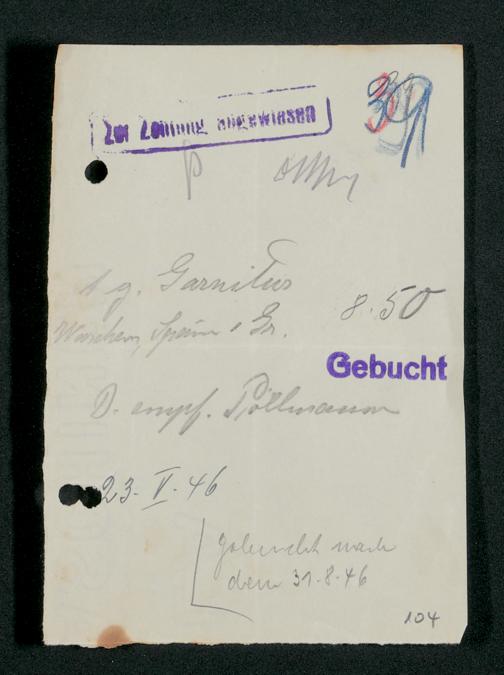 Zur Zahlung angewiesen
39
1 g. Garnitur
8.50
Waschen,
Gebucht
D. empf. Pöllmann
23. V. 46
gebucht nach
dem 31.8.46
104